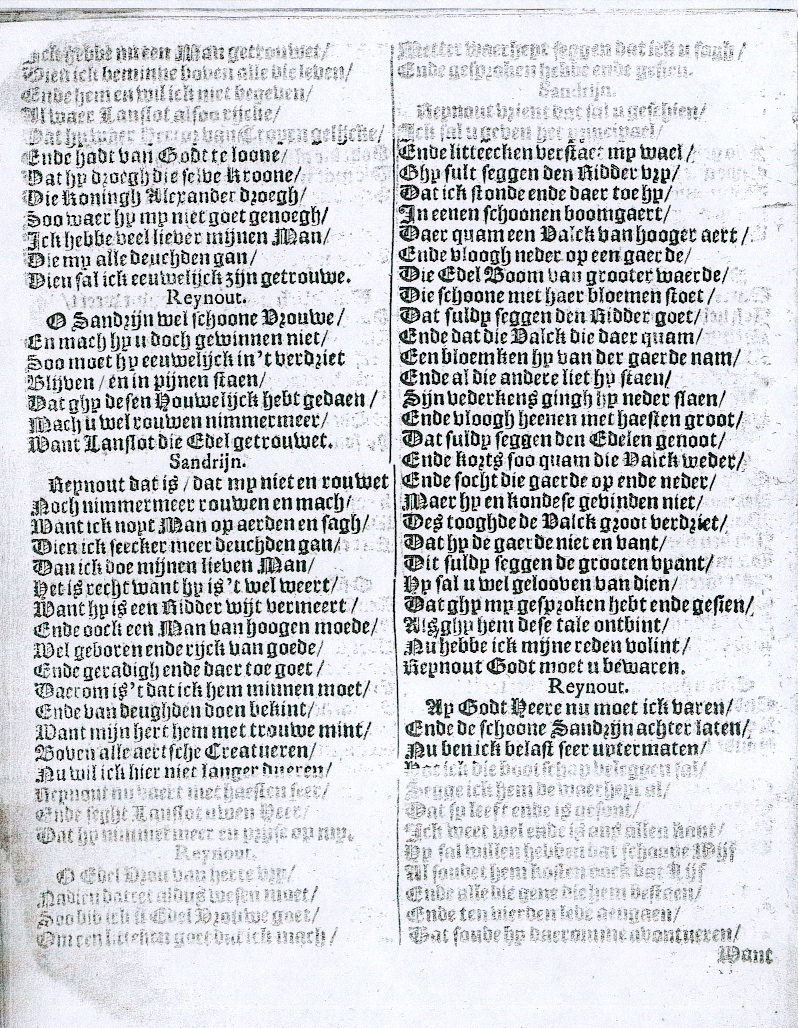 Ick hebbe nu een Man getrouwet /
Dien ick beminne boven alle die leven /
Ende hem en wil ick niet begeven /
Al waer Lanslot alsoo rijcke /
Dat hy waer Hector van Troyen gelijcke /
Ende hadt van Godt te loone /
Dat hy droegh die selve Kroone /
Die Koningh Alexander droegh /
Soo waer hy my niet goet genoegh /
Ick hebbe veel liever mijnen Man /
Die my alle deuchden gan /
Dien sal ick eeuwelijck zijn getrouwe.
Reynout.
O Sandrijn wel schoone Vrouwe /
En mach hy u doch gewinnen niet /
Soo moet hy eeuwelijck in't verdriet
Blijven / en in pijnen staen /
Dat ghy desen Houwelijck hebt gedaen /
Mach u wel rouwen nimmermeer /
Want Lanslot die Edel getrouwet.
Sandrijn.
Reynout dat is / dat my niet en rouwet
Noch nimmermeer rouwen en mach /
Want ick noyt Man op aerden en sagh /
Dien ick seecker meer deuchden gan /
Dan ick doe mijnen lieven Man /
Het is recht want hy is't wel weert /
Want hy is een Ridder wijt vermeert /
Ende oock een Man van hoogen moede /
Wel geboren ende rijck van goede /
Ende geradigh ende daer toe goet /
Daerom is't dat ick hem minnen moet /
Ende van deughden doen bekint /
Want mijn hert hem met trouwe mint /
Boven alle aertsche Creatueren /
Nu wil ick hier niet langer dueren /
Reynout nu vaert met haesten seer /
Ende seght Lanslot uwen Heer /
Dat hy nimmermeer en peyse op my.
Reynout.
O Edel Vrou van herte vry /
Nadien dattet aldus wesen moet /
Soo bid ick u Edel Vrouwe goet /
Om een litteken goet dat ick mach /
Metter waerheyt seggen dat ick u sagh /
Ende gesproken hebbe ende gesien.
Sandrijn.
Reynout vrient dat sal u geschien /
Ick sal u geven het principael /
Ende litteecken verstaet my wael /
Ghy sult seggen den Ridder vry /
Dat ick stonde ende daer toe hy /
In eenen schoonen boomgaert /
Daer quam een Valck van hooger aert /
Ende vloogh neder op een gaerde /
Die Edel Boom van grooter waerde /
Die schoone met haer bloemen stoet /
Dat suldy seggen den Ridder goet /
Ende dat die Valck die daer quam /
Een bloemken hy van der gaerde nam /
Ende al die andere liet hy staen /
Sijn vederkens gingh hy neder slaen /
Ende vloogh heenen met haesten groot /
Dat suldy seggen den Edelen genoot /
Ende korts soo quam die Valck weder /
Ende socht die gaerde op ende neder /
Maer hy en kondese gevinden niet /
Des tooghde de Valck groot verdriet /
Dat hy de gaerde niet en vant /
Dit suldy seggen de grooten vyant /
Hy sal u wel gelooven van dien /
Dat ghy my gesproken hebt ende gesien /
Als ghy hem dese tale ontbint /
Nu hebbe ick mijne reden volint /
Reynout Godt moet u bewaren.
Reynout.
Ay Godt Heere nu moet ick varen /
Ende de schoone Sandrijn achter laten /
Nu ben ick belast seer uytermaten /
Hoe ick die bootschap beleggen sal /
Segge ick hem de waerheyt al /
Dat sy leeft ende is gesont /
Ick weet wel ende is ons allen kont /
Hy sal willen hebben dat schoone Wijf
Al soudet hem kosten oock dat Lijf
Ende alle die gene die hem bestaen /
Ende ten vierden lede aengaen /
Dat soude hy daeromme avontueren /
Want